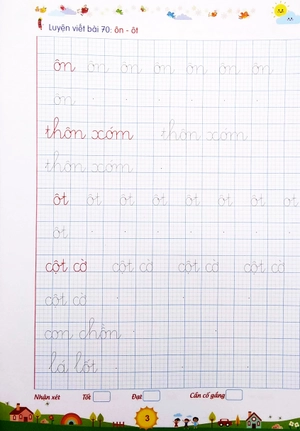 Luyện viết bài 70: ôn - ôt
ôn ôn ôn ôn ôn ôn ôn
ôn
thôn xóm thôn xóm
thôn xóm
ôt ôt ôt ôt ôt ôt ôt ôt
ôt
cột cờ cột cờ cột cờ cột cờ
cột cờ
con chồn
lá lốt
Nhận xét Tốt Đạt Cần cố gắng
3